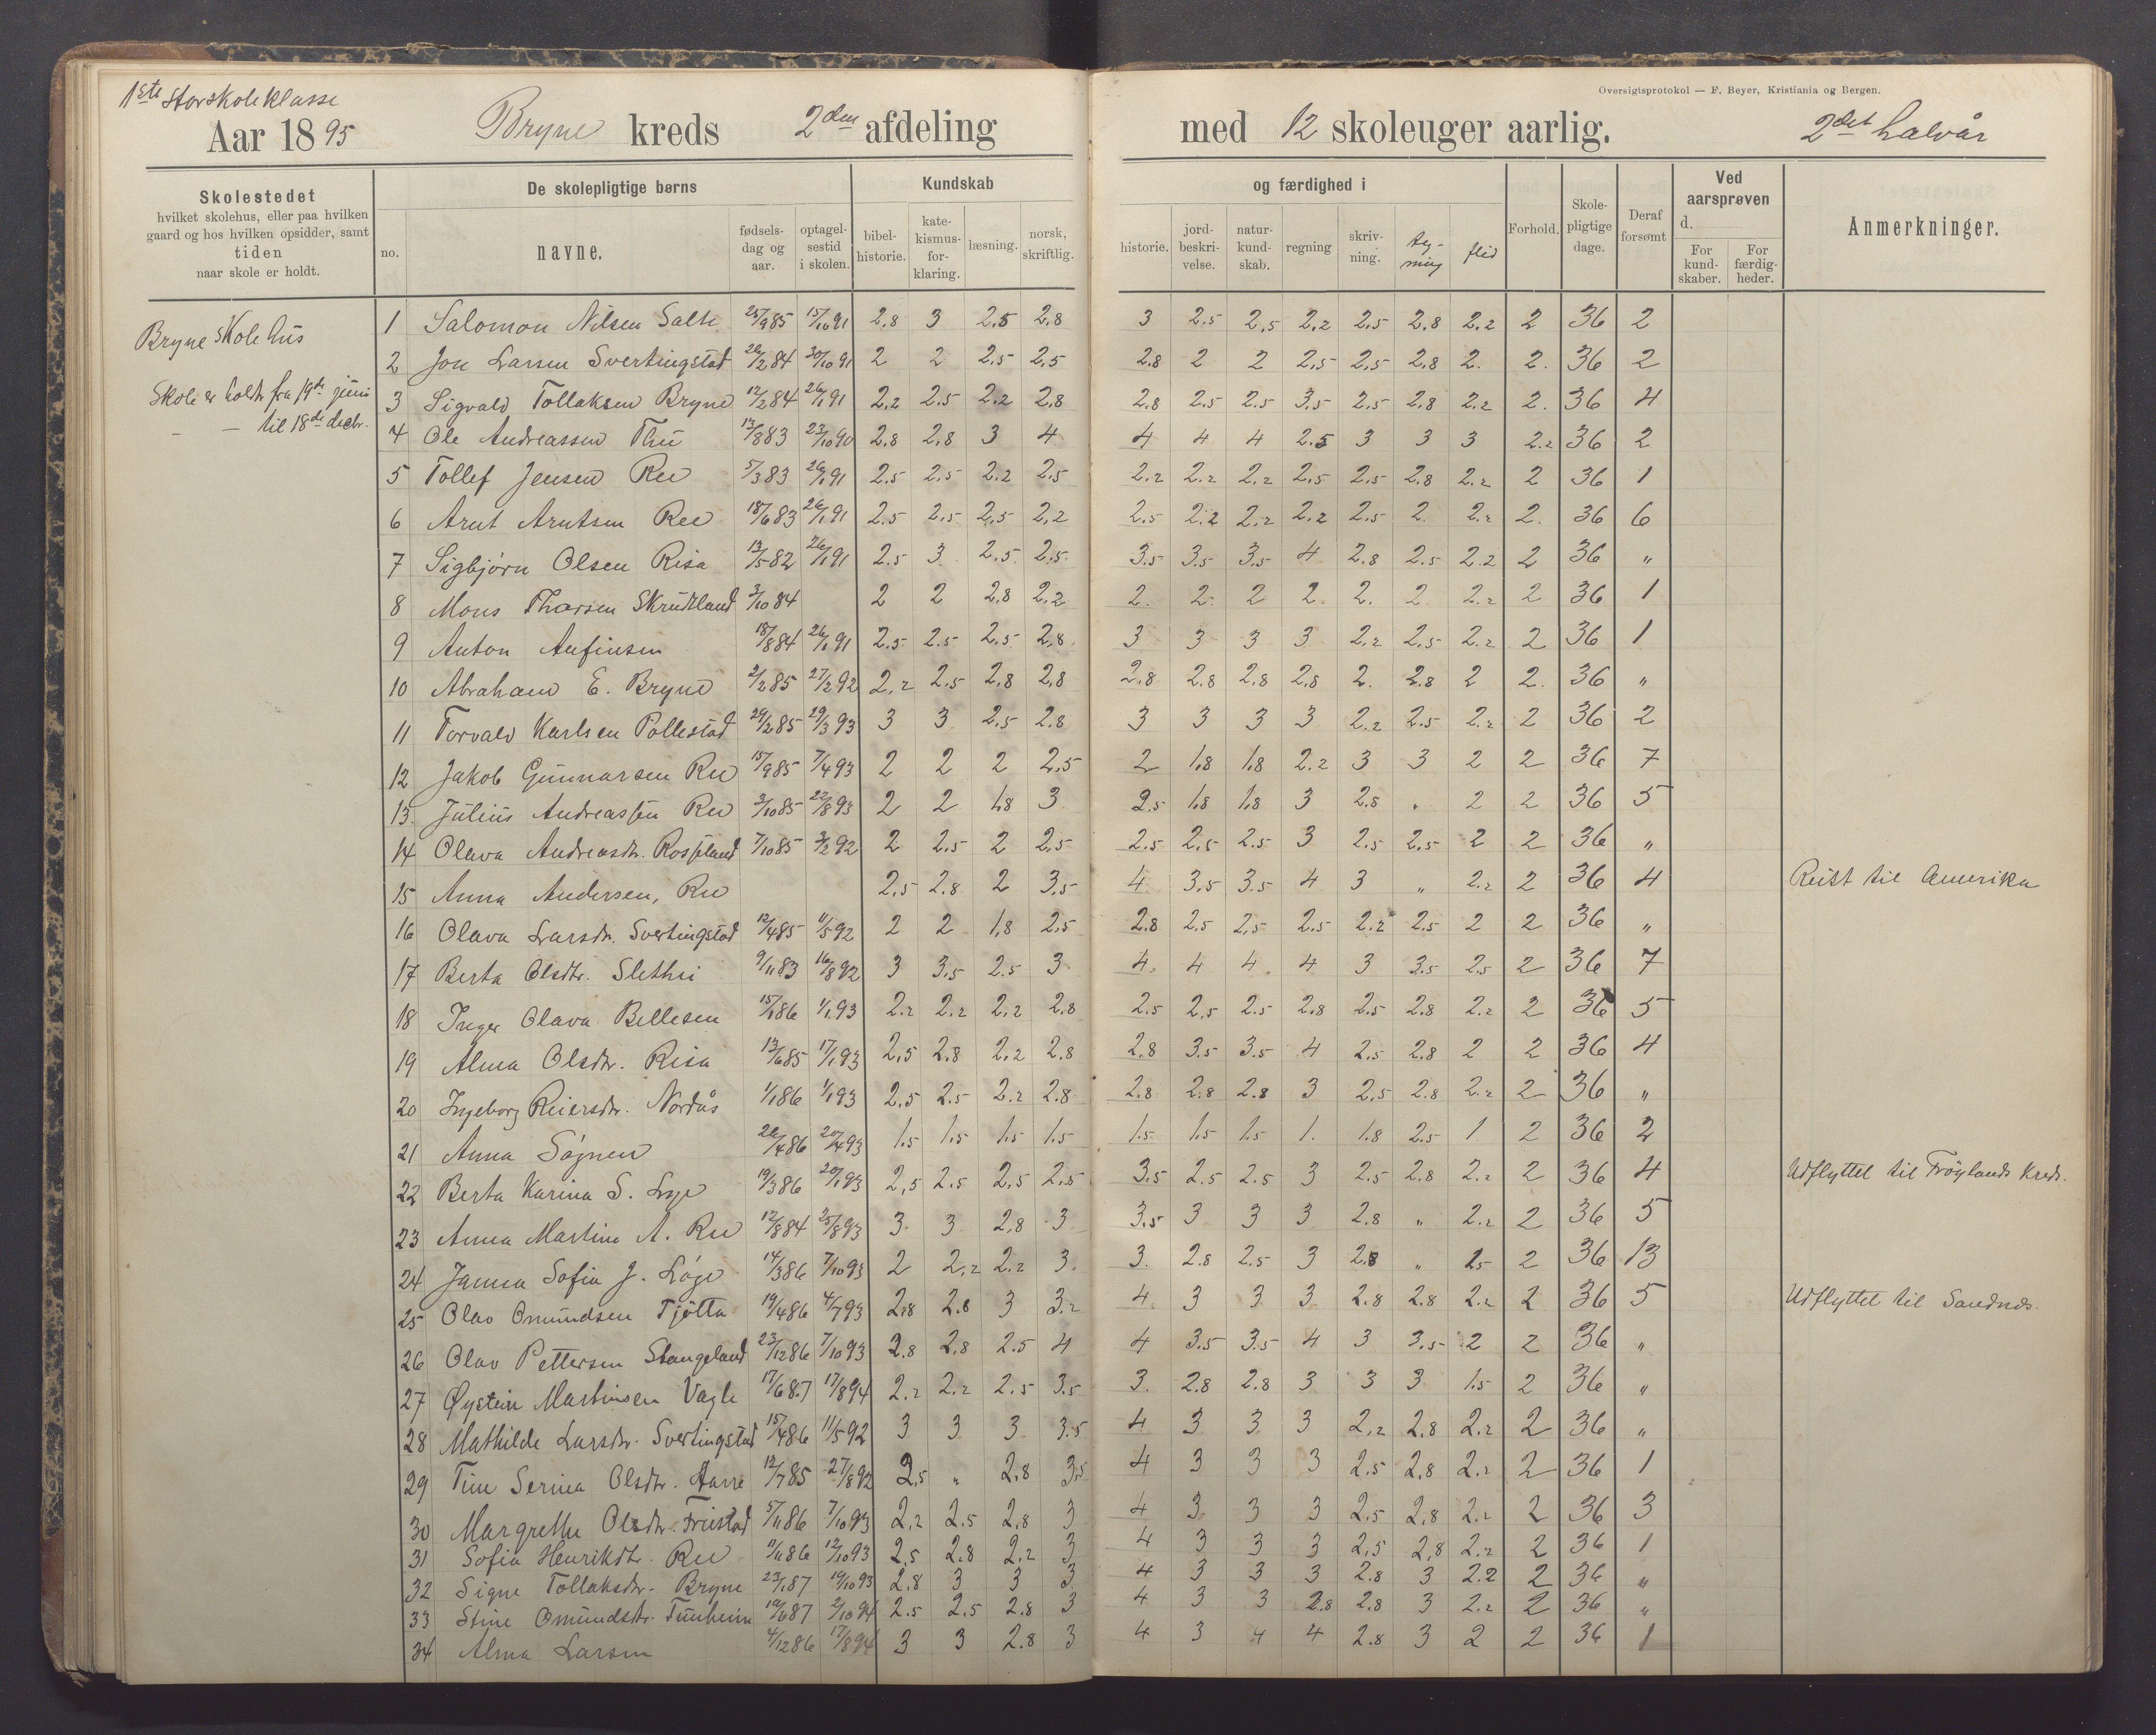 1ste storskoleklasse
Oversigtsprotokol — F. Beyer, Kristiania og Bergen.
Aar 1895 Bryne kreds 2den afdeling med 12 skoleuger aarlig. 2det halvår
Skolestedet
hvilket skolehus, eller paa hvilken
gaard og hos hvilken opsidder, samt
tiden
naar skole er holdt.
De skolepligtige børns
no. navne. fødsels-dag og aar. optagel-sestid i skolen.
Kundskab og færdighed i
bibel-historie. kate-kismus-for-klaring. læsning. norsk, skriftlig. historie. jord-beskri-velse. natur-kund-skab. regning skriv-ning. teg-ning flid
Forhold. Skole-pligtige dage. Deraf forsømt
Ved aarsprøven d.
For kund-skaber. For færdig-heder.
Anmerkninger.
Bryne Skolehus
Skole er holdt fra 19de juni
— — til 18de decbr.
1 Salomon Nilsen Salte 25/9 85 15/10 91 2.8 3 2.5 2.8 3 2.5 2.5 2.2 2.5 2.8 2.2 2 36 2
2 Jon Larsen Svertingstad 2/2 84 30/10 91 2 2 2.5 2.5 2.8 2 2 2.5 2.5 2.8 2. 2. 36 2
3 Sigvald Tollaksen Bryne 12/2 84 26/1 91 2.2 2.5 2.2 2.8 2.8 2.5 2.5 3.5 2.5 2.8 2.2 2. 36 4
4 Ole Andreassen Thu 13/8 83 23/10 90 2.8 2.8 3 4 4 4 4 2.5 3 3 3 2.2 36 2
5 Tollef Jensen Ree 5/3 83 26/1 91 2.5 2.5 2.2 2.5 2.2 2.2 2.2 2.5 2.5 2.8 2.2 2 36 1
6 Arnt Arntsen Ree 18/6 83 26/1 91 2.5 2.5 2.5 2.2 2.5 2.2 2.2 2.2 2.5 2 2.2 2. 36 6
7 Sigbjörn Olsen Risa 13/5 82 26/1 91 2.5 3 2.5 2.5 3.5 3.5 3.5 4 2.8 2.5 2.2 2 36 "
8 Mons Thorsen Skrudland 3/10 84 2 2 2.8 2.2 2. 2. 2 2. 2. 2. 2.2 2 36 1
9 Anton Anfinsen 18/8 84 26/1 91 2.5 2.5 2.5 2.8 3 3 3 3 2.2 2.5 2.2 2 36 1
10 Abraham E. Bryne 2/2 85 27/2 92 2.2 2.5 2.8 2.8 2.8 2.8 2.8 2.8 2. 2.8 2 2. 36 "
11 Torvald Karlsen Pollestad 29/2 85 29/3 93 3 3 2.5 2.8 3 3 3 3 2.2 2.5 2.2 2 36 2
12 Jakob Gunnarsen Ree 15/9 85 7/4 93 2 2 2 2.5 2 1.8 1.8 2.2 3 3 2 2 36 7
13. Julius Andreassen Ree 3/10 85 22/8 93 2 2 1.8 3 2.5 1.8 1.8 3 2.8 " 2 2 36 5
14 Olava Andreasdtr. Rossland 7/10 85 3/2 92 2 2.5 2 2.5 2.5 2.5 2.5 3 2.5 2.5 2 2 36 "
15 Anna Andersen, Ree 2.5 2.8 2 3.5 4 3.5 3.5 4 3 " 2.2 2 36 4 Reist til Amerika
16 Olava Larsdtr. Svertingstad 12/4 85 11/5 92 2 2 1.8 2.5 2.8 2.5 2.5 2.5 2.2 2.5 2 2 36 "
17 Berta Olsdtr. Slethei 9/11 83 16/8 92 3 3.5 2.5 3 4. 4 4 4 3 3.5 2.5 2 36 7
18 Inger Olava Bellesen 15/1 86 1/1 93 2.2 2.2 2.2 2.8 2.5 2.5 2.5 2.8 2.5 2.8 2.2 2 36 5
19 Alma Olsdtr. Risa 13/6 85 17/1 93 2.5 2.8 2.2 2.8 2.8 3.5 3.5 4 2.5 2.8 2 2 36 4
20 Ingeborg Reiersdtr. Nordås 1/1 86 1/1 93 2.5 2.5 2.2 2.8 2.8 2.8 2.8 3 2.5 2.8 2.2 2 36 "
21 Anna Sognen 26/4 86 20/4 93 1.5 1.5 1.5 1.5 1.5 1.5 1.5 1. 1.8 2.5 1 2 36 2
22 Berta Karina S. Lye 19/3 86 20/1 93 2.5 2.5 2.5 2.5 3.5 2.5 2.5 3 2.5 2.8 2.2 2 36 4 Udflyttet til Fröylands Kreds.
23 Anna Martine A. Ree 12/8 84 25/8 93 3. 3 2.8 3 3.5 3 3 3 2.8 " 2.2 2 36 5
24 Janna Sofia J. Löge 14/3 86 7/10 93 2 2.2 2.2 3. 3. 2.8 2.5 3 2.8 " 2.5 2 36 13
25 Olav Omundsen Tjötta 19/4 86 4/7 93 2.8 2.8 3 3.2 4. 3 3 3 2.8 2.8 2.2 2 36 5 Udflyttet til Sandnæs.
26 Olav Pettersen Stangeland 23/12 86 7/10 93 2.8 2.8 2.5 4 4 3.5 3.5 4 3 3.5 2 2 36 "
27 Øystein Martinsen Vagle 17/6 87 17/8 94 2.2 2.2 2.5 3.5 3. 2.8 2.8 3 3 3 1.5 2 36 "
28 Mathilde Larsdtr. Svertingstad 15/4 86 11/5 92 3 3 3 3.5 4 3 3 3 2.2 2.8 2.2 2 36 "
29 Tine Serina Olsdtr. Aarre 12/7 85 27/8 92 2.5 " 2.8 3.5 4 3 3 3 2.5 2.8 2.2 2 36 1
30 Margrethe Olsdtr. Friestad 5/11 86 7/10 93 2.2 2.5 2.8 3 4 3 3 3 2.5 2.8 2.2 2 36 3
31 Sofia Henrikdtr. Ree 11/11 86 12/10 93 2.5 2.8 2.2 3 4 3 3 3 2.5 2.8 2.2 2 36 1
32 Signe Tollaksdtr. Bryne 23/1 87 19/10 93 2.8 3 3 3 4 3 3 3 2.8 3 2.2 2 36 "
33 Stine Omundsdtr. Tunheim 19/6 87 2/10 94 2.5 2.5 2.8 3 4 3 3 2.8 2.8 3 2.2 2 36 "
34 Alma Larsen 4/12 86 17/8 94 3 3 2.8 3 4 3 4 4 2.8 3 2 2 36 1